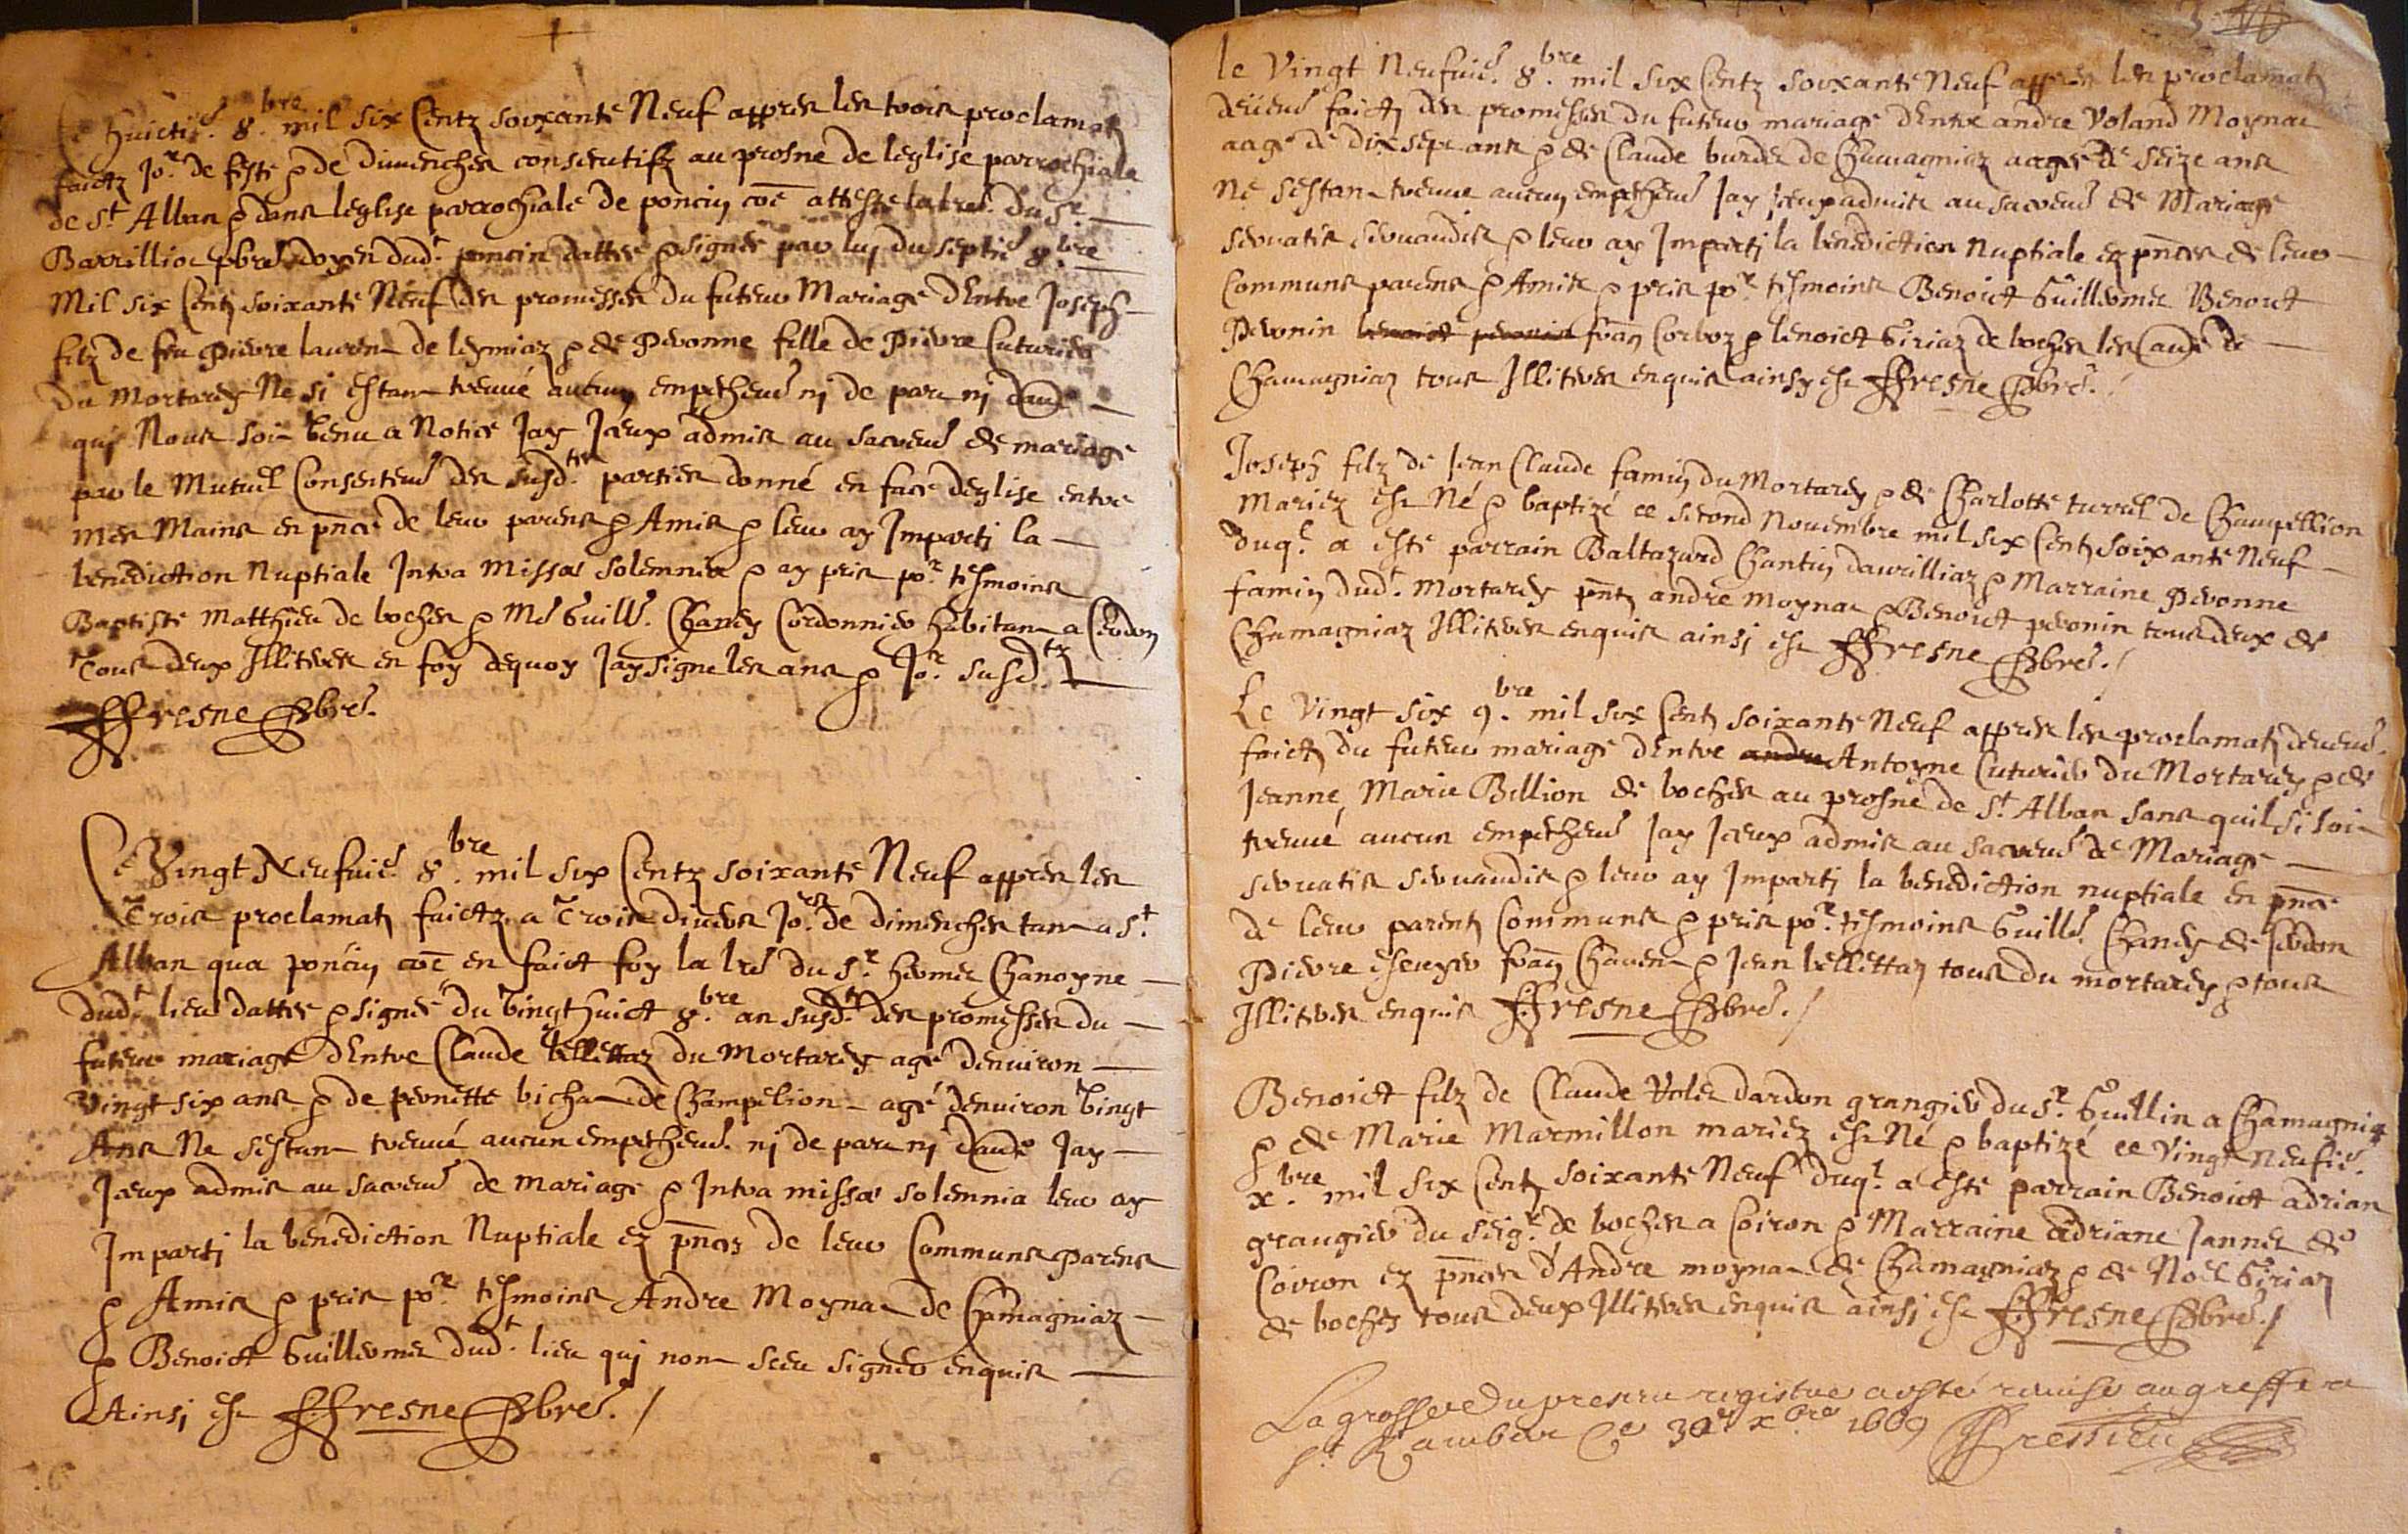 Ce huictie. 8.bre mil six Centz soixante Neuf appres les trois proclamatz
faictz jo.r de feste & de dimenches consecutifz au prosne de leglise parrochiale
de St Alban & dans leglise parrochiale de poncin coe atteste la lre. du Sr. —
Barrillioc pbre doyen dud.t poncin dattee & signee par luy du septie 8.bre
Mil six Centz soixante Neuf des promesses du futeur Mariage dEntre Joseph —
filz de feu Pierre laurent de leymiaz & de Pevonne fille de Pierre Cuturier
du Mortarey Ne si estant treuué aucun empechem.t nj de part nj daut.e —
quj Nous soit benu a Notice Jay Jceux admis au sacrem.t de mariage
par le Mutuel Consentem.t des susd.tes parties donné en face deglise entre
mes Mains en pnce de leur parens & Amis & leur ay Imparti la —
benediction Nuptiale Intra Missae solemnia & ay pris po.r tesmoins
Baptiste Matthieu de boches & Me Guille. Chaney Cordonnier habitant a Cerdon
Tous deux Illiteres en foy dequoy Jay signe les ans & Jo.r susd.tz —
Ffresne Pbre.
Ce Vingt Neufuie. 8.bre mil six Centz soixante Neuf appres les
Trois proclamatz faictz a Trois diuers Jo.rs de dimenches tant a St.
Alban qua poncin coe en faict foy la lre du Sr. hermet Chanoyne —
dud.t lieu dattee & signee du Vingt huict 8.bre an susd.t des promesses du —
futeur mariage dEntre Claude bellettaz du Mortarey agé denuiron —
Vingt six ans & de pernette bichat de Champelion — agé denuiron Vingt
Ans Ne sestant treuué aucun empechem.t nj de part nj daute Jay —
Jceux admis au sacrem.t de mariage & Intra missae solennia leur ay
Imparti la benediction Nuptiale ez pnces de leur Communs parens
& Amis & pris po.r tesmoins Andre Moynat de Chamagniaz —
& Benoict Guillermet dud.t lieu quj nont sceu signer enquis —
Ainsi est Ffresne Pbre. /
le Vingt Neufuie. 8.bre mil six Centz soixante Neuf appres les proclamatz
deüem.t faictz des promesses du futeur mariage dEntre andre Voland Moynat
aagé de dix sept ans & de Claude burdet de Chamagniaz aagee de seize ans
Ne sestant treuue aucun empechem.t Jay Jceux admis au sacrem.t de Mariage
seruatis seruandis & leur ay Imparti la benediction Nuptiale ez pnces de leur —
Communs parens & Amis & pris po.r tesmoins Benoict Guillermet Benoict
Peronin benoict peronin fran Corboz & benoict Giriaz de boches les Caude de —
Chamagniaz tous Illiteres enquis ainsy est Ffresne Pbre. /
Joseph filz de Jean Claude famin du Mortarey & de Charlotte turrel de Champellion
Mariez est Né & baptizé ce second Nouembre mil six Centz soixante Neuf —
duq.l a esté parrain Baltazard Chantin daurilliaz & Marraine Pevonne
famin dud.t Mortarey pntz andre Moynat & Benoict peronin tous deux de
Chamagniaz Illiteres enquis ainsi est Ffresne Pbre. /
Le Vingt six 9.bre mil six Centz soixante Neuf appres les proclamatz deuem.t
faictz du futeur mariage dEntre andre Antoyne Cuturier du Mortarey & de
Jeanne Marie Billion de boches au prosne de St. Alban sans quil si soit
treuué aucun empechem.t Jay Jceux admis au sacrem.t de Mariage —
seruatis seruandis & leur ay Imparti la benediction nuptiale en pnce
de leur parentz Communs & pris po.r tesmoins Guille. Chaney de Cerdon
Pierre escuyer fran Chauent & Jean bellettaz tous du mortarey & tous
Illiteres enquis Ffresne Pbre. /
Benoict filz de Claude Volet dardon grangier du Sr. Guillin a Chamagniaz
& de Marie Marmillon mariez est Né & baptizé ce Vingt neufie.
x.bre mil six Centz soixante Neuf duq.l a esté parrain Benoict adrian
grangier du seig.r de boches a Coiron & Marraine adriane Jannet de
Coiron ez pnces d'Andre moynat de Chamagniaz & de Noel Giriaz
de boches tous deux Illiteres enquis ainsi est Ffresne Pbre. /
La grosse du present registre a esté remise au greffe a
St. Rambert Ce 30e xbre 1669